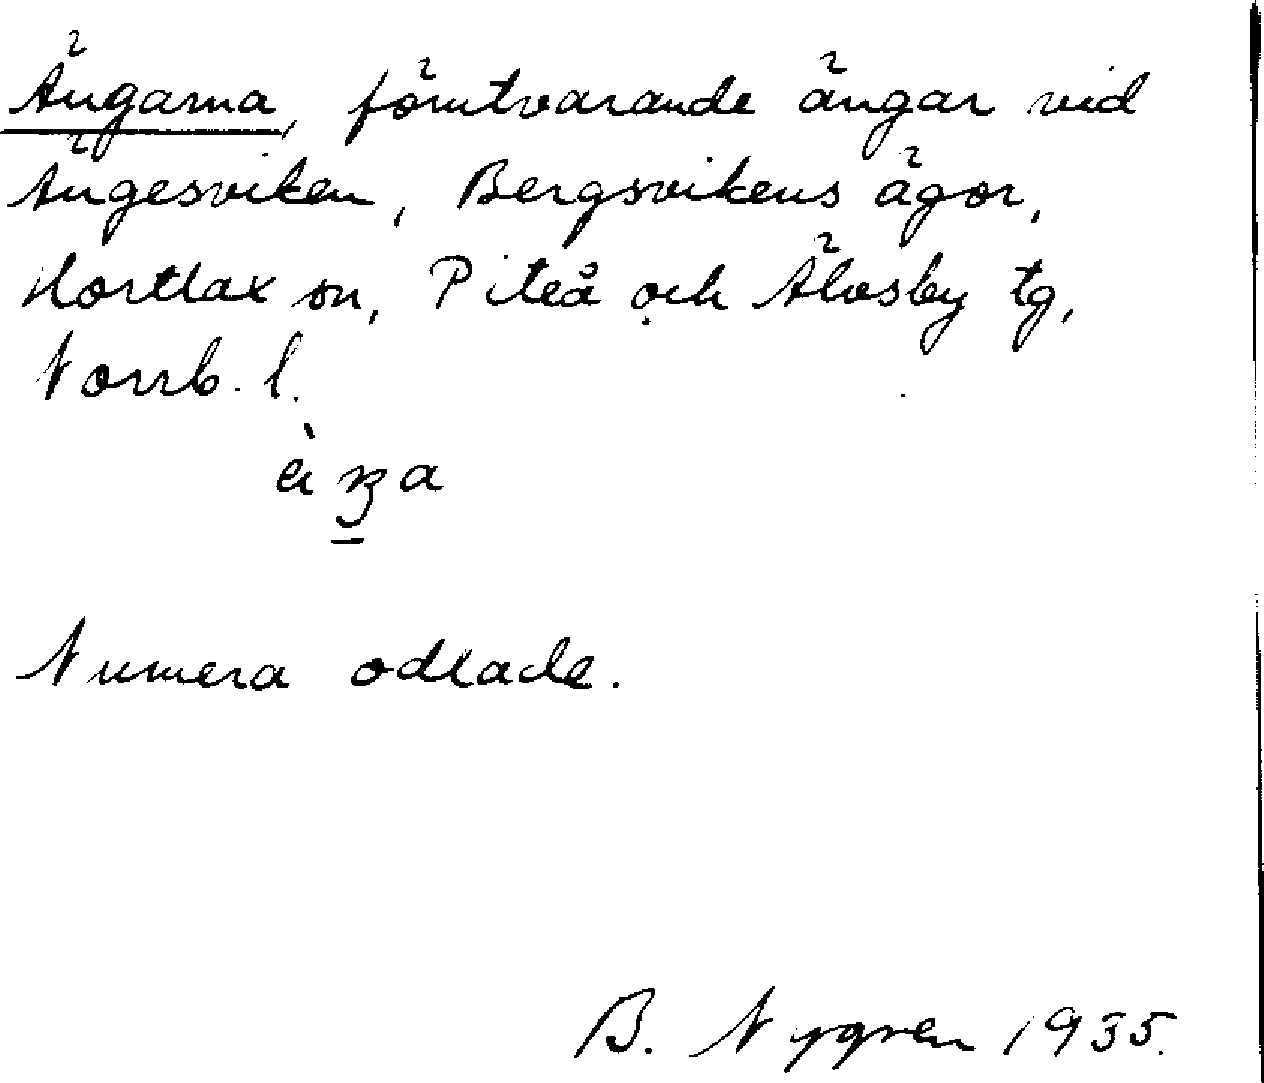 Ängarna, förutvarande ängar vid
Ängesviken, Bergsvikens ägor,
Hortlax sn, Piteå och Älvsby tg,
Norrb. l.
Numera odlade.
B. Nygren 1935.